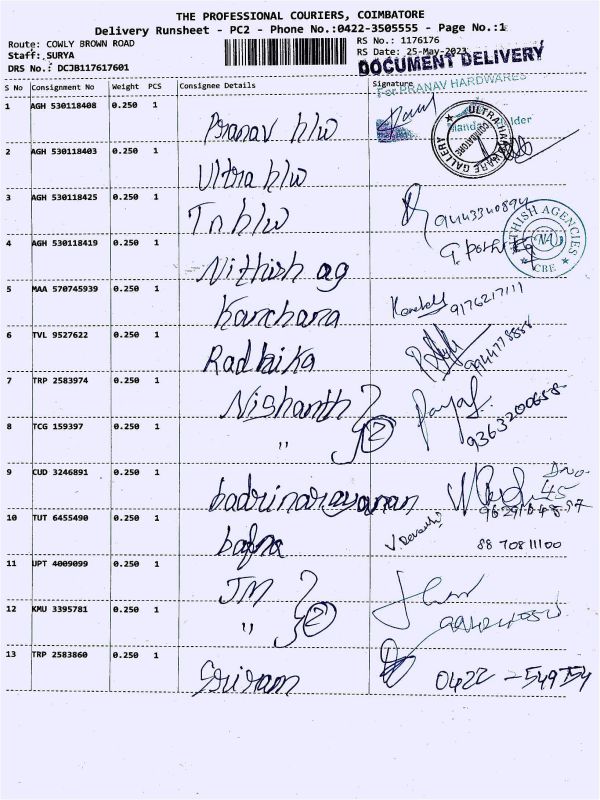 THE PROFESSIONAL COURIERS, COIMBATORE
Delivery Runsheet - PC2 - Phone No.:0422-3505555 - Page No.:1
Route: COWLY BROWN ROAD
RS No.: 1176176
Staff: SURYA
RS Date: 25-May-2023
DRS No.: DCJB117617601
DOCUMENT DELIVERY
S No Consignment No Weight PCS Consignee Details Signature
For PRANAV HARDWARES
1 AGH 530118408 0.250 1 Pranav h/w
ULTRA HARDWARE GALLERY
COIMBATORE
2 AGH 530118403 0.250 1 Ultra h/w
3 AGH 530118425 0.250 1 Tn h/w 9443340894
4 AGH 530118419 0.250 1 Nithish ag
NITHISH AGENCIES
NA
CBE
5 MAA 570745939 0.250 1 Kanchana 9176217111
6 TVL 9527622 0.250 1 Radhika
7 TRP 2583974 0.250 1 Nishanth
8 TCG 159397 0.250 1 " 2 9363200658
9 CUD 3246891 0.250 1 badrinarayanan
10 TUT 6455490 0.250 1 bafna 8870811100
11 UPT 4009099 0.250 1 JM
12 KMU 3395781 0.250 1 " 2
13 TRP 2583860 0.250 1 Sriram 0422 - 549754